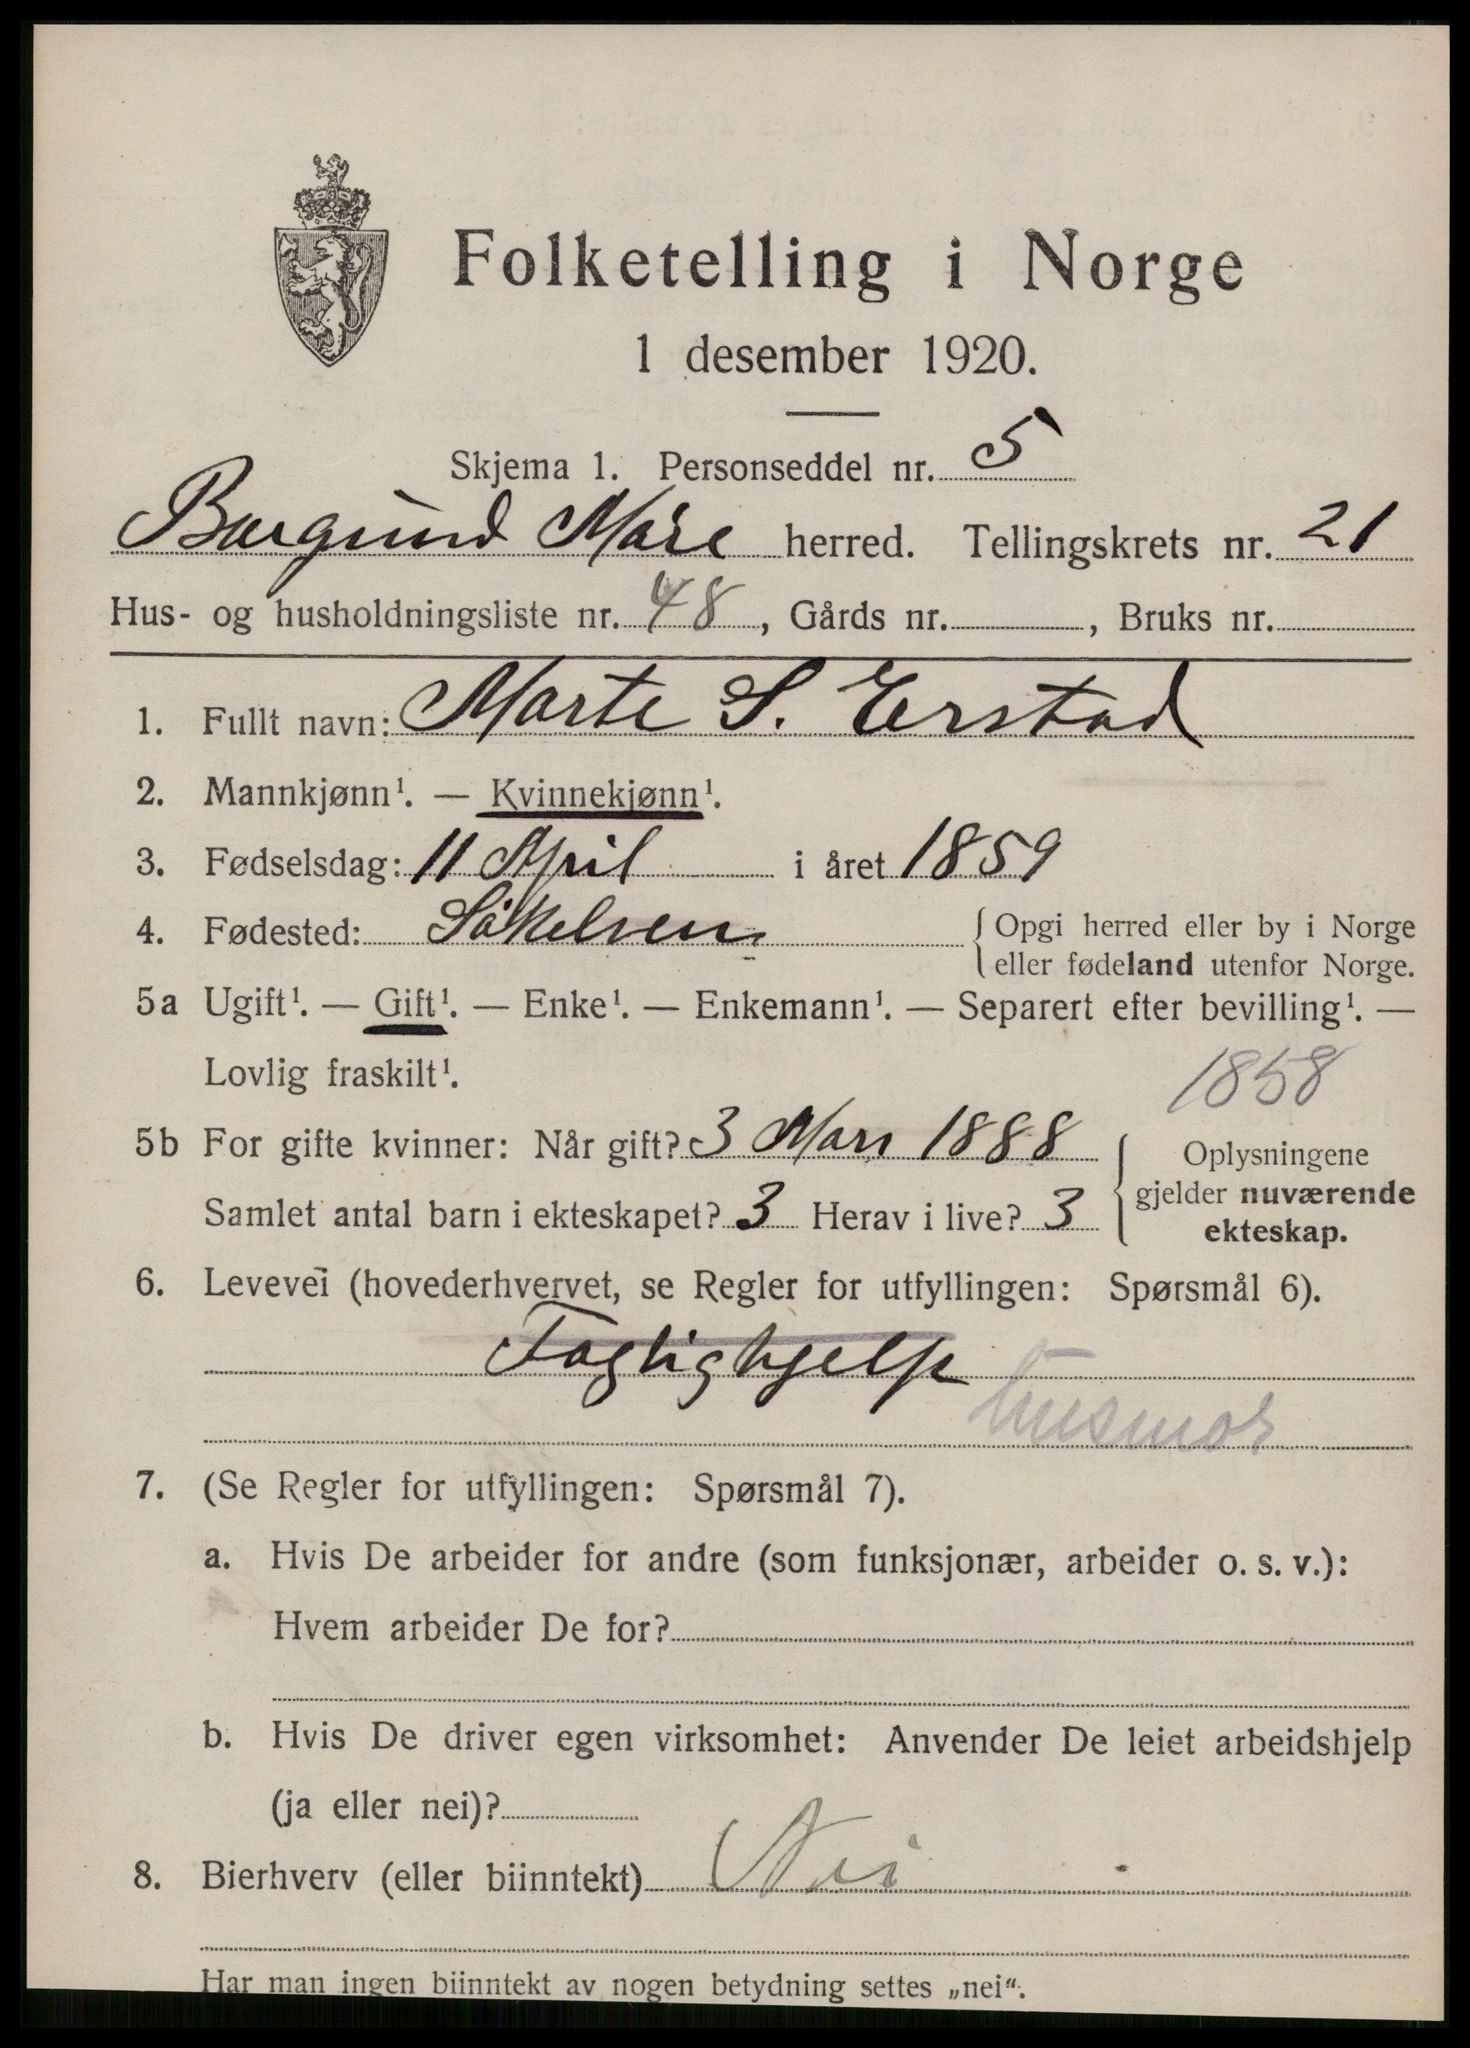 Folketelling i Norge
1 desember 1920.
Skjema 1. Personseddel nr. 5
Borgund Møre herred. Tellingskrets nr. 21
Hus- og husholdningsliste nr. 48, Gårds nr. , Bruks nr.
1. Fullt navn: Marte S. Erstad
2. Mannkjønn¹. — Kvinnekjønn¹.
3. Fødselsdag: 11 April i året 1859
4. Fødested: Søkelven { Opgi herred eller by i Norge
eller fødeland utenfor Norge.
5a Ugift¹. — Gift¹. — Enke¹. — Enkemann¹. — Separert efter bevilling¹. —
Lovlig fraskilt¹. 1858
5b For gifte kvinner: Når gift? 3 Mars 1888
Samlet antal barn i ekteskapet? 3 Herav i live? 3
Oplysningene
gjelder nuværende
ekteskap.
6. Levevei (hovederhvervet, se Regler for utfyllingen: Spørsmål 6).
Faglighjelp
husmor
7. (Se Regler for utfyllingen: Spørsmål 7).
a. Hvis De arbeider for andre (som funksjonær, arbeider o. s. v.):
Hvem arbeider De for?
b. Hvis De driver egen virksomhet: Anvender De leiet arbeidshjelp
(ja eller nei)?
8. Bierhverv (eller biinntekt) Nei
Har man ingen biinntekt av nogen betydning settes „nei“.